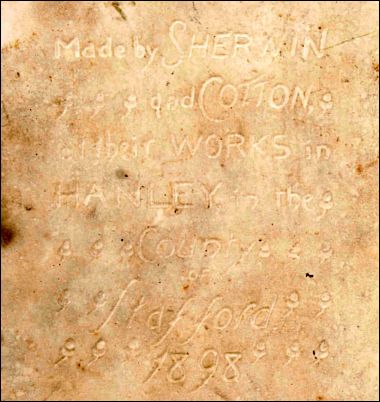 Made by SHERWIN
and COTTON,
at their WORKS in
HANLEY, in the
County
OF
Stafford
1898